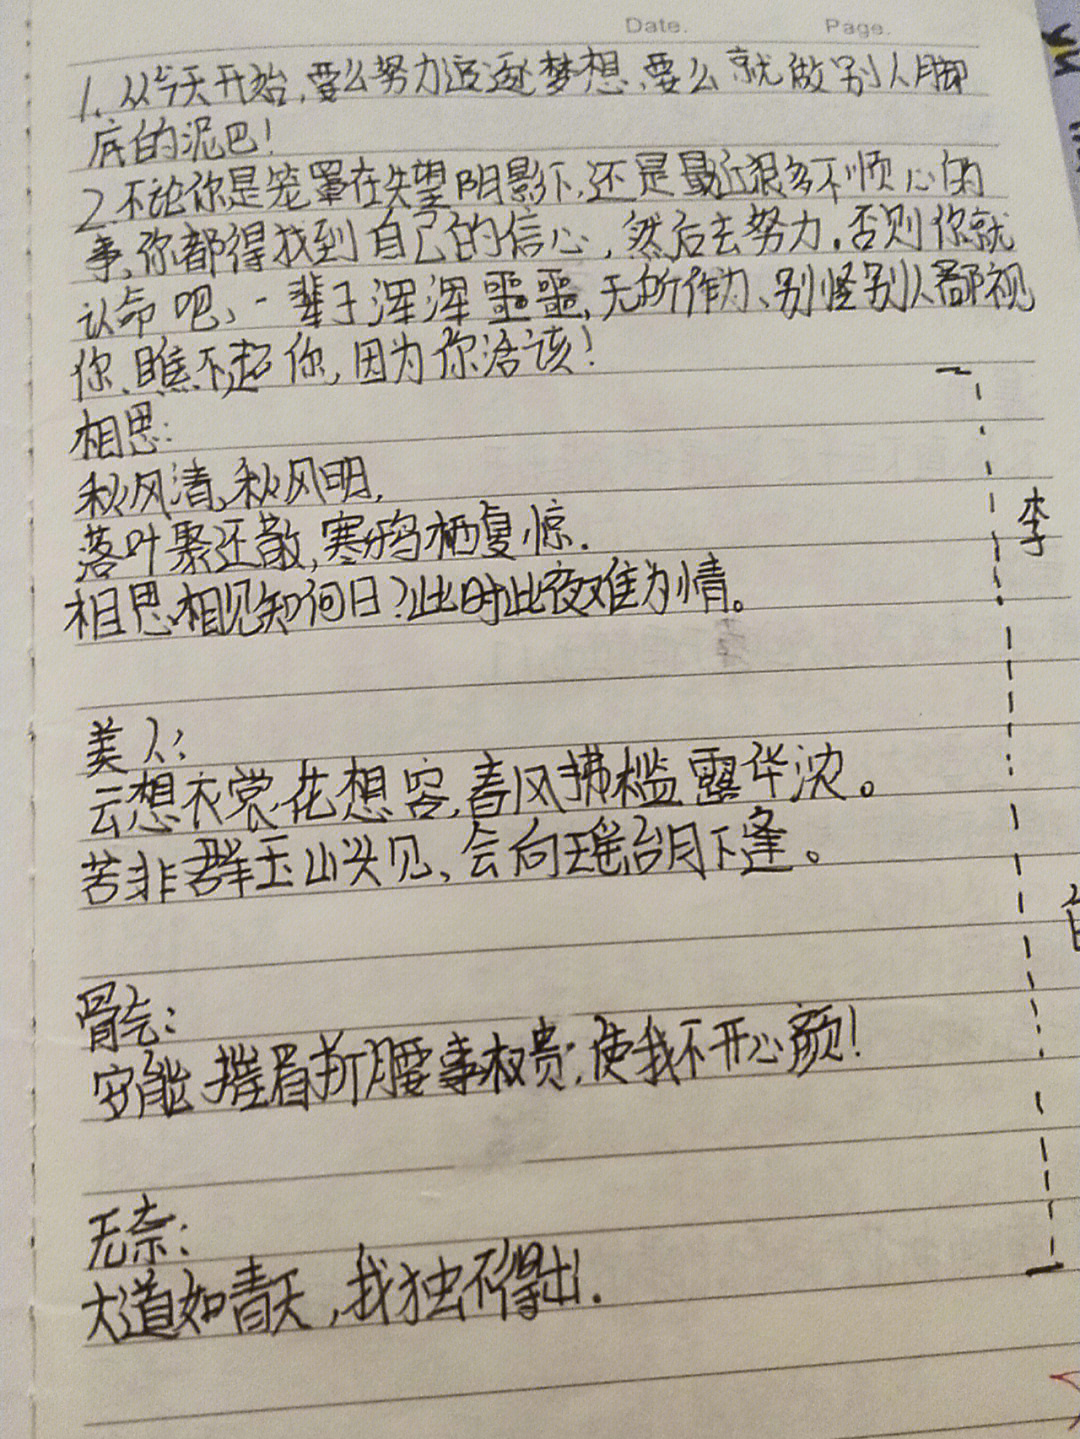 Date.
Page.
1. 从今天开始,要么努力追逐梦想、要么就做别人脚
底的泥巴!
2.不论你是笼罩在失望阴影下,还是最近很多不顺心的
事,你都得找到自己的信心,然后去努力。否则你就
认命吧、一辈子浑浑噩噩,无所作为、别怪别人鄙视
你、瞧不起你,因为你活该!
相思:
秋风清,秋风明,
落叶聚还散,寒鸦栖复惊.
相思相见知何日?此时此夜难为情。
美人:
云想衣裳花想容,春风拂槛露华浓。
苦非群玉山头见、会向瑶台月下逢。
骨气:
安能摧眉折腰事权贵,使我不开心颜!
无奈:
大道如青天,我独不得出.
李